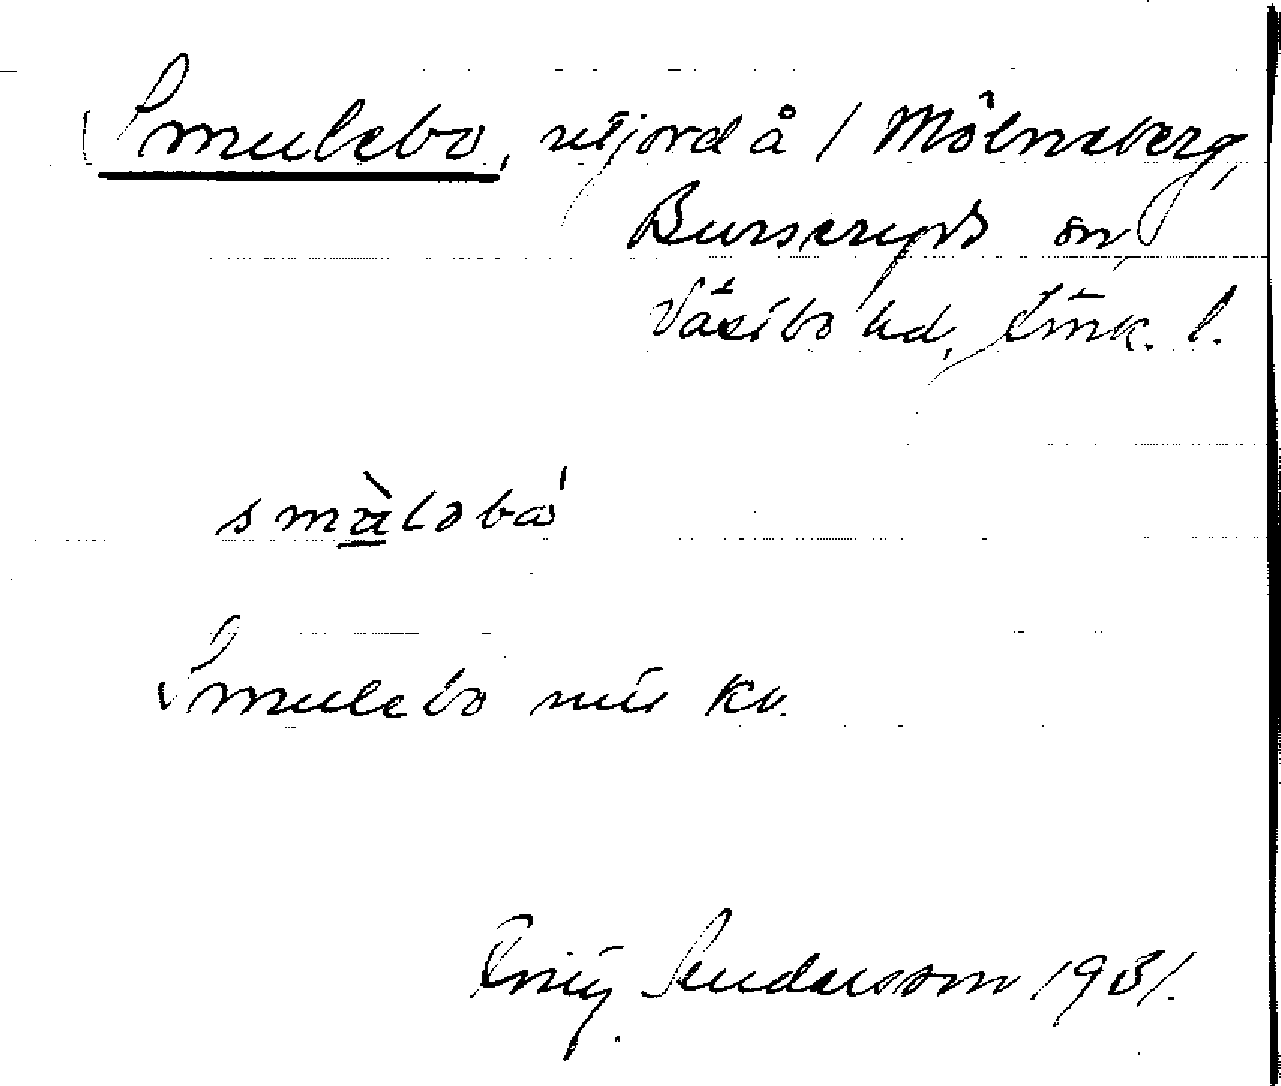 Smulebo, utjord å / Målneberg,
Burseryds sn,
Västbo hd, Jönk. l.
smùləbo'
Smulebo
Andersson 1931.